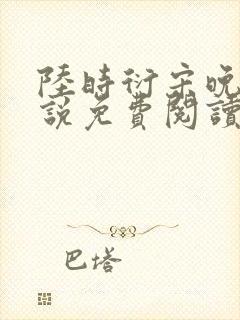 陸時衍宋晚
說免費閱讀
巴塔